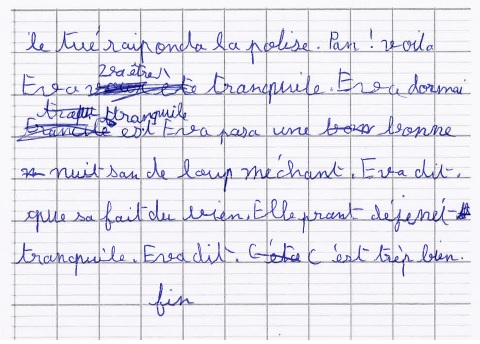 le tué raiponda la polise. Pan ! voila
Eva va être tranquile. Eva dormai
tranquile est Eva pasa une bonne
nuit san de loup méchant. Eva dit.
que sa fait du bien. Elle prant déjené
tranquile. Eva dit. C'est trèp bien.
fin